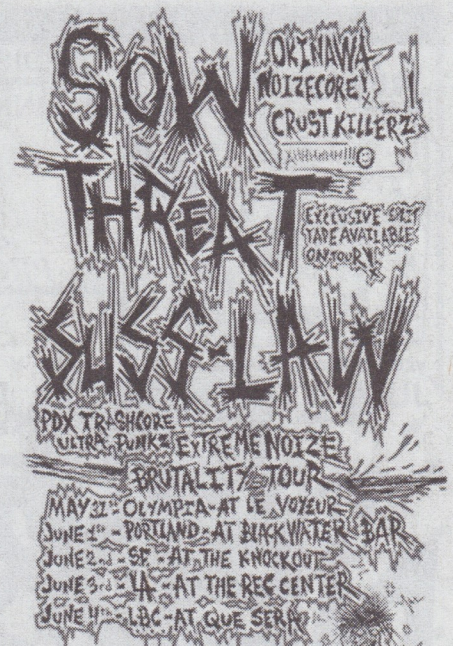 SOW
OKINAWA
NOIZECORE!
CRUST KILLERZ
THREAT
EXCLUSIVE SPLIT
TAPE AVAILABLE
ON TOUR
SUSS-LAW
PDX TRASHCORE
ULTRA PUNKZ EXTREME NOIZE
BRUTALITY TOUR
MAY 31st - OLYMPIA - AT LE VOYEUR
JUNE 1st - PORTLAND - AT BLACKWATER BAR
JUNE 2nd - SF - AT THE KNOCKOUT
JUNE 3rd - LA - AT THE REC CENTER
JUNE 4th - LBC - AT QUE SERA